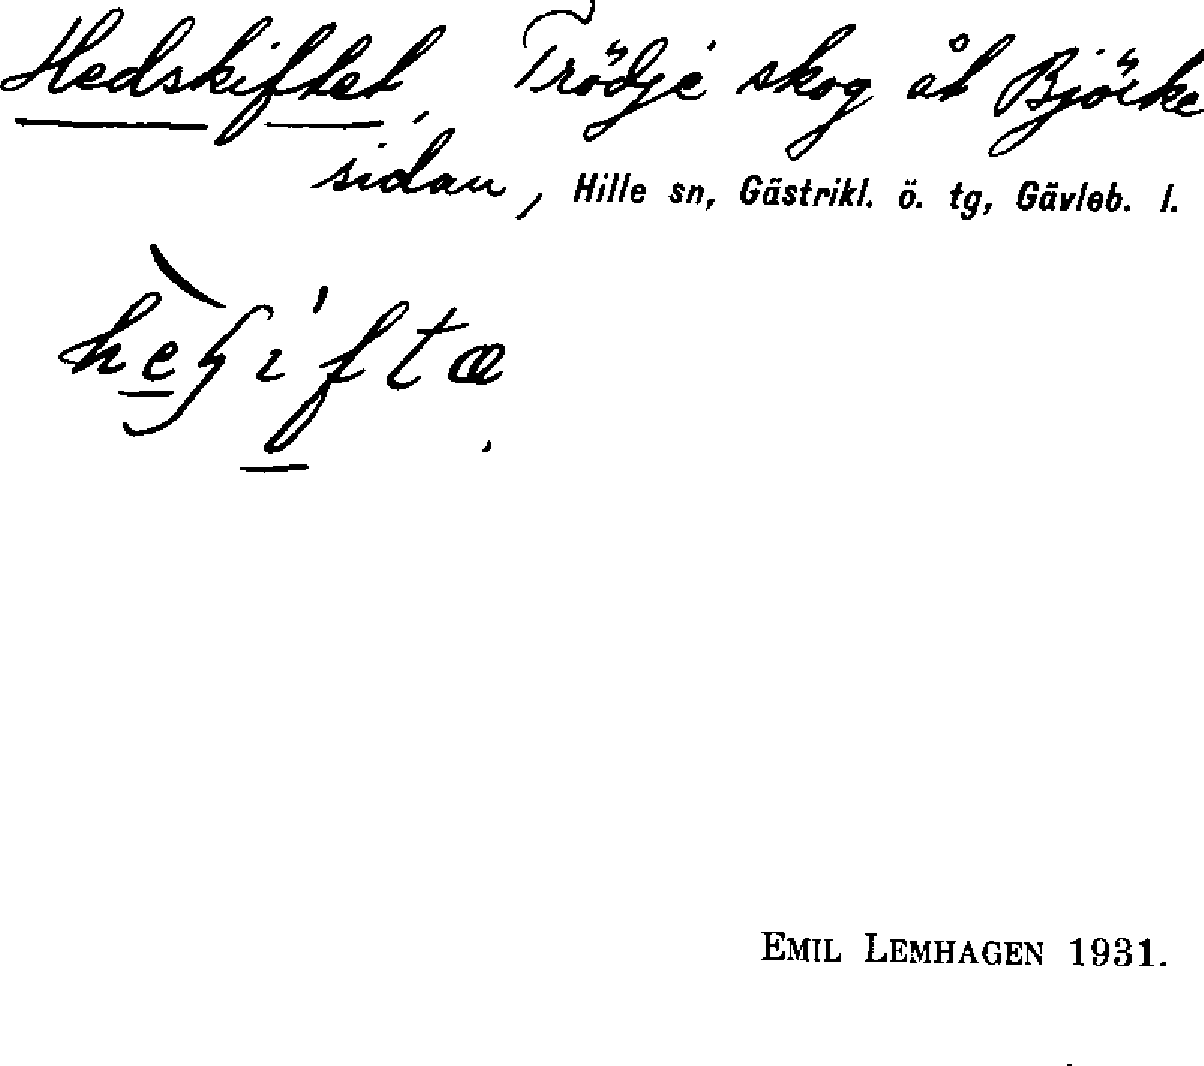 Hedskiftet, Trödje skog åt Björke
sidan, Hille sn, Gästrikl. ö. tg, Gävleb. l.
EMIL LEMHAGEN 1931.